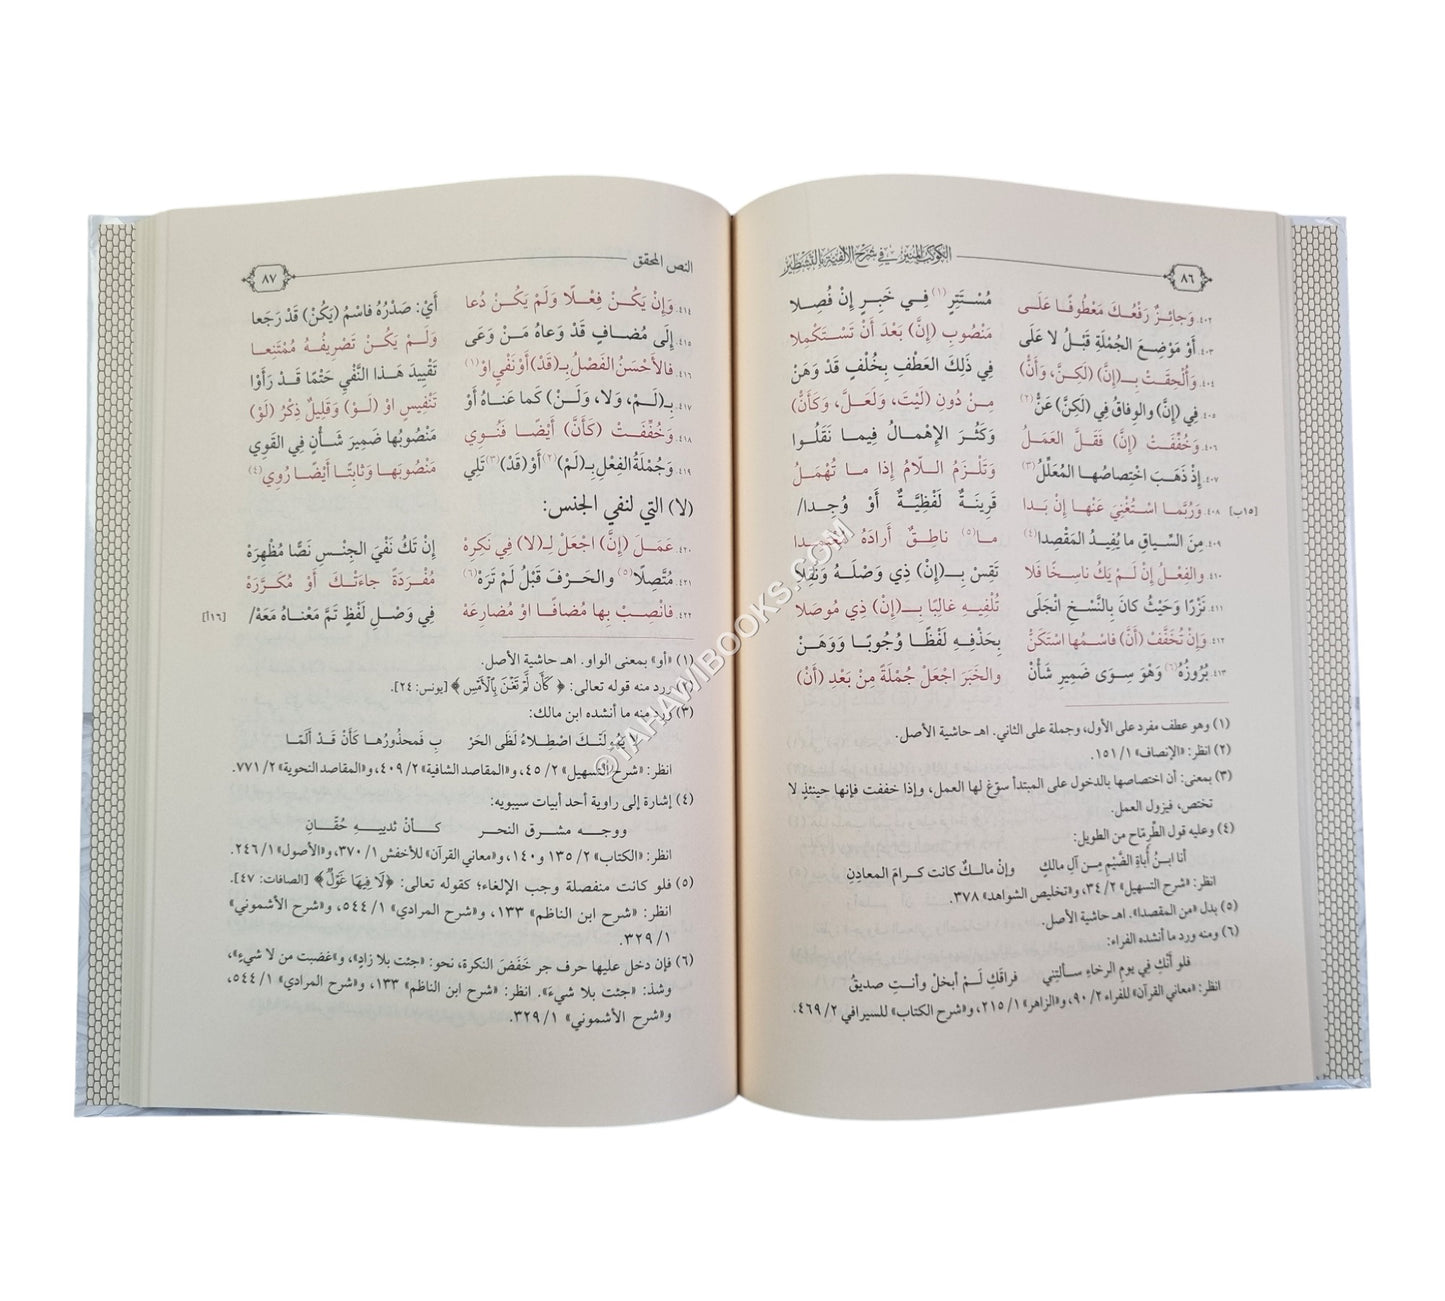 ٨٦ الكوكب المنير في شرح الألفية بالتشطير
٤٠٢. وَجائِزٌ رَفْعُكَ مَعْطُوفًا عَلَى مُسْتَتِرٍ (١) فِي خَبِرٍ إِنْ فُصِلا
٤٠٣. أَوْ مَوْضِعَ الجُمْلَةِ قَبْلُ لا عَلَى مَنْصُوبِ (إِنَّ) بَعْدَ أَنْ تَسْتَكْمِلا
٤٠٤. وَأُلْحِقَتْ بِـ(إِنَّ) (لَكِنَّ، وَأَنَّ) فِي ذَلِكَ العَطْفِ بِخُلْفٍ قَدْ وَهَنْ
٤٠٥. فِي (إِنَّ) والوِفاقُ فِي (لَكِنَّ) عَنَّ (٢) مِنْ دُونِ (لَيْتَ، وَلَعَلَّ، وَكَأَنَّ)
٤٠٦. وَخُفِّفَتْ (إِنَّ) فَقَلَّ العَمَلُ وَكَثُرَ الإِهْمالُ فِيما نَقَلُوا
٤٠٧. إِذْ ذَهَبَ اخْتِصاصُها المُعَلِّلُ (٣) وَتَلْزَمُ اللامُ إِذا ما تُهْمَلُ
[١٥ب] ٤٠٨. وَرُبَّما اسْتُغْنِيَ عَنْها إِنْ بَدا قَرِينَةٌ لَفْظِيَّةٌ أَوْ وُجِدا/
٤٠٩. مِنَ السِّياقِ ما يُفِيدُ المَقْصِدا (٤) ما (٥) ناطِقٌ أَرادَهُ مُعْتَمِدا
٤١٠. والفِعْلُ إِنْ لَمْ يَكُ ناسِخًا فَلا تَقِسْ بِـ(إِنْ) ذِي وَصْلَهُ وَنُقِلا
٤١١. نَزْرًا وَحَيْثُ كانَ بِالنَّسْخِ انْجَلَى تُلْفِيهِ غالِبًا بِـ(إِنْ) ذِي مُوصَلا
٤١٢. وَإِنْ تُخَفَّفْ (أَنَّ) فاسْمُها اسْتَكَنّْ بِحَذْفِهِ لَفْظًا وُجُوبًا وَوَهَنْ
٤١٣. بُرُوزُهُ (٦) وَهْوَ سِوَى ضَمِيرِ شَأْنْ والخَبَرَ اجْعَلْ جُمْلَةً مِنْ بَعْدِ (أَنْ)
(١) وهو عطف مفرد على الأول، وجملة على الثاني. اهـ حاشية الأصل.
(٢) انظر: «الإنصاف» ١/ ١٥١.
(٣) بمعنى: أن اختصاصها بالدخول على المبتدأ سوّغ لها العمل، وإذا خففت فإنها حينئذٍ لا
تختص، فيزول العمل.
(٤) وعليه قول الطِّرِمّاح من الطويل:
أنا ابنُ أُباةِ الضَّيْمِ مِن آلِ مالكٍ وإنْ مالكٌ كانت كرامَ المعادِنِ
انظر: «شرح التسهيل» ٢/ ٣٤، و«تخليص الشواهد» ٣٧٨.
(٥) بدل «من المقصدا». اهـ حاشية الأصل.
(٦) ومنه ورد ما أنشده الفراء:
فلو أَنْكِ فِي يومِ الرخاءِ سألتِنِي فراقَكِ لَمْ أبخلْ وأنتِ صديقُ
انظر: «معاني القرآن» للفراء ٢/ ٩٠، و«الزاهر» ١/ ٢١٥، و«شرح الكتاب» للسيرافي ٢/ ٤٦٩.
النص المحقق ٨٧
٤١٤. وَإِنْ يَكُنْ فِعْلًا وَلَمْ يَكُنْ دُعا أَيْ: صَدْرُهُ فاسْمُ (يَكُنْ) قَدْ رَجَعا
٤١٥. إِلَى مُضافٍ قَدْ وَعاهُ مَنْ وَعَى وَلَمْ يَكُنْ تَصْرِيفُهُ مُمْتَنِعا
٤١٦. فالأَحْسَنُ الفَصْلُ بِـ(قَدْ) أَوْ نَفْيٍ اوْ (١) تَقْيِيدَ هَذا النَّفْيِ حَتْمًا قَدْ رَأَوْا
٤١٧. بِـ(لَمْ، وَلا، وَلَنْ) كَما عَناهُ أَوْ تَنْفِيسٍ اوْ (لَوْ) وَقَلِيلٌ ذِكْرُ (لَوْ)
٤١٨. وَخُفِّفَتْ (كَأَنَّ) أَيْضًا فَنُوِي مَنْصُوبُها ضَمِيرَ شَأْنٍ فِي القَوِي
٤١٩. وَجُمْلَةُ الفِعْلِ بِـ(لَمْ) (٢) أَوْ (قَدْ) (٣) تَلِي مَنْصُوبَها وَثابِتًا أَيْضًا رُوِي (٤)
(لا) التي لنفي الجنس:
٤٢٠. عَمَلَ (إِنَّ) اجْعَلْ لِـ(لا) فِي نَكِرَهْ إِنْ تَكُ نَفْيَ الجِنْسِ نَصًّا مُظْهِرَهْ
٤٢١. مُتَّصِلًا (٥) والحَرْفَ قَبْلُ لَمْ تَرَهْ (٦) مُفْرَدَةً جاءَتْكَ أَوْ مُكَرَّرَهْ
٤٢٢. فانْصِبْ بِها مُضافًا اوْ مُضارِعَهْ فِي وَصْلِ لَفْظٍ تَمَّ مَعْناهُ مَعَهْ/ [١٦أ]
(١) «أو» بمعنى الواو. اهـ حاشية الأصل.
(٢) ورد منه قوله تعالى: ﴿كَأَن لَّمْ تَغْنَ بِالْأَمْسِ﴾ [يونس: ٢٤].
(٣) ورد منه ما أنشده ابن مالك:
لا يَهُولَنَّكَ اصْطِلاءُ لَظَى الحَرْ بِ فَمحذُورُها كَأَنْ قَدْ أَلَمَّا
انظر: «شرح التسهيل» ٢/ ٤٥، و«المقاصد الشافية» ٢/ ٤٠٩، و«المقاصد النحوية» ٢/ ٧٧١.
(٤) إشارة إلى راوية أحد أبيات سيبويه:
ووجه مشرق النحر كأنْ ثدييه حُقّانِ
انظر: «الكتاب» ٢/ ١٣٥ و١٤٠، و«معاني القرآن» للأخفش ١/ ٣٧٠، و«الأصول» ١/ ٢٤٦.
(٥) فلو كانت منفصلة وجب الإلغاء؛ كقوله تعالى: ﴿لَا فِيهَا غَوْلٌ﴾ [الصافات: ٤٧].
انظر: «شرح ابن الناظم» ١٣٣، و«شرح المرادي» ١/ ٥٤٤، و«شرح الأشموني»
١/ ٣٢٩.
(٦) فإن دخل عليها حرف جر خَفَضَ النكرة، نحو: «جئت بلا زادٍ»، و«غضبت من لا شيءٍ»،
وشذ: «جئت بلا شيءَ». انظر: «شرح ابن الناظم» ١٣٣، و«شرح المرادي» ١/ ٥٤٤،
و«شرح الأشموني» ١/ ٣٢٩.
©TAHAWIBOOKS.COM